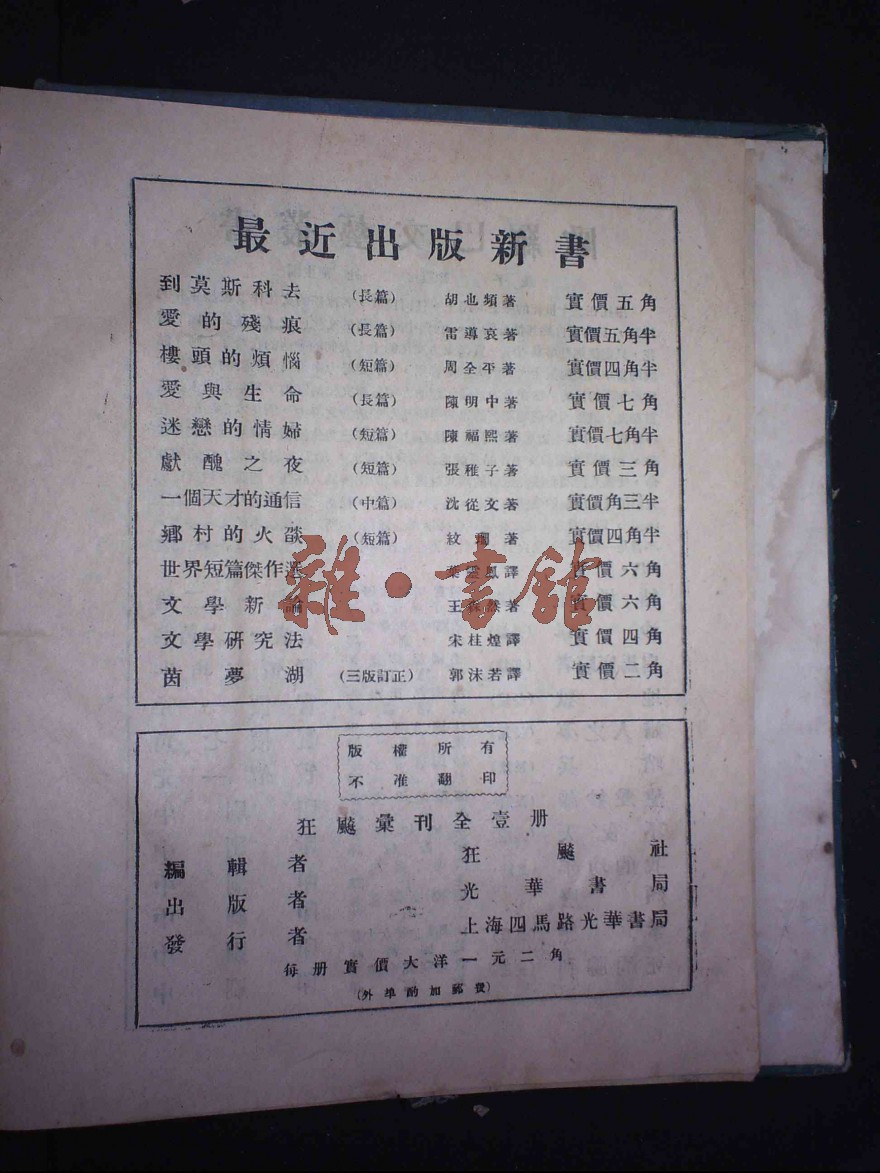 最近出版新書
到莫斯科去 (長篇) 胡也頻著 實價五角
愛的殘痕 (長篇) 雷導哀著 實價五角半
樓頭的煩惱 (短篇) 周全平著 實價四角半
愛與生命 (長篇) 陳明中著 實價七角
迷戀的情婦 (短篇) 陳福熙著 實價七角半
獻醜之夜 (短篇) 張稚子著 實價三角
一個天才的通信 (中篇) 沈從文著 實價角三半
鄉村的火燄 (短篇) 紋 著 實價四角半
世界短篇傑作選 葉靈鳳譯 實價六角
文學新論 王森然著 實價六角
文學研究法 宋桂煌譯 實價四角
茵夢湖 (三版訂正) 郭沫若譯 實價二角
雜·書館
版權所有
不准翻印
狂飈彙刊全壹册
編輯者 狂飈社
出版者 光華書局
發行者 上海四馬路光華書局
每册實價大洋一元二角
(外埠酌加郵費)